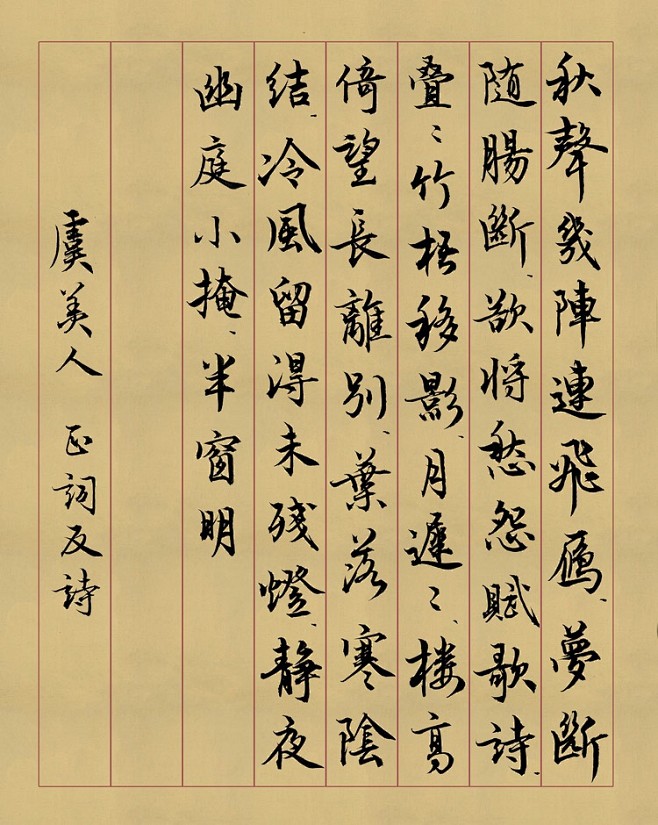 秋聲幾陣連飛鴈、夢斷
随腸斷、欲将愁怨賦歌詩、
叠〻竹梧移影、月遲〻、楼高
倚望長離別、葉落寒陰
结、冷風留得未殘燈、靜夜
幽庭小掩、半窗明
虞美人 正詞反詩